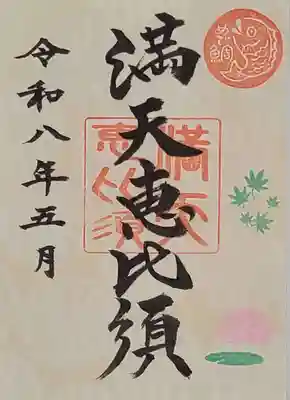 満天恵比須
令和八年五月
満天
恵比須